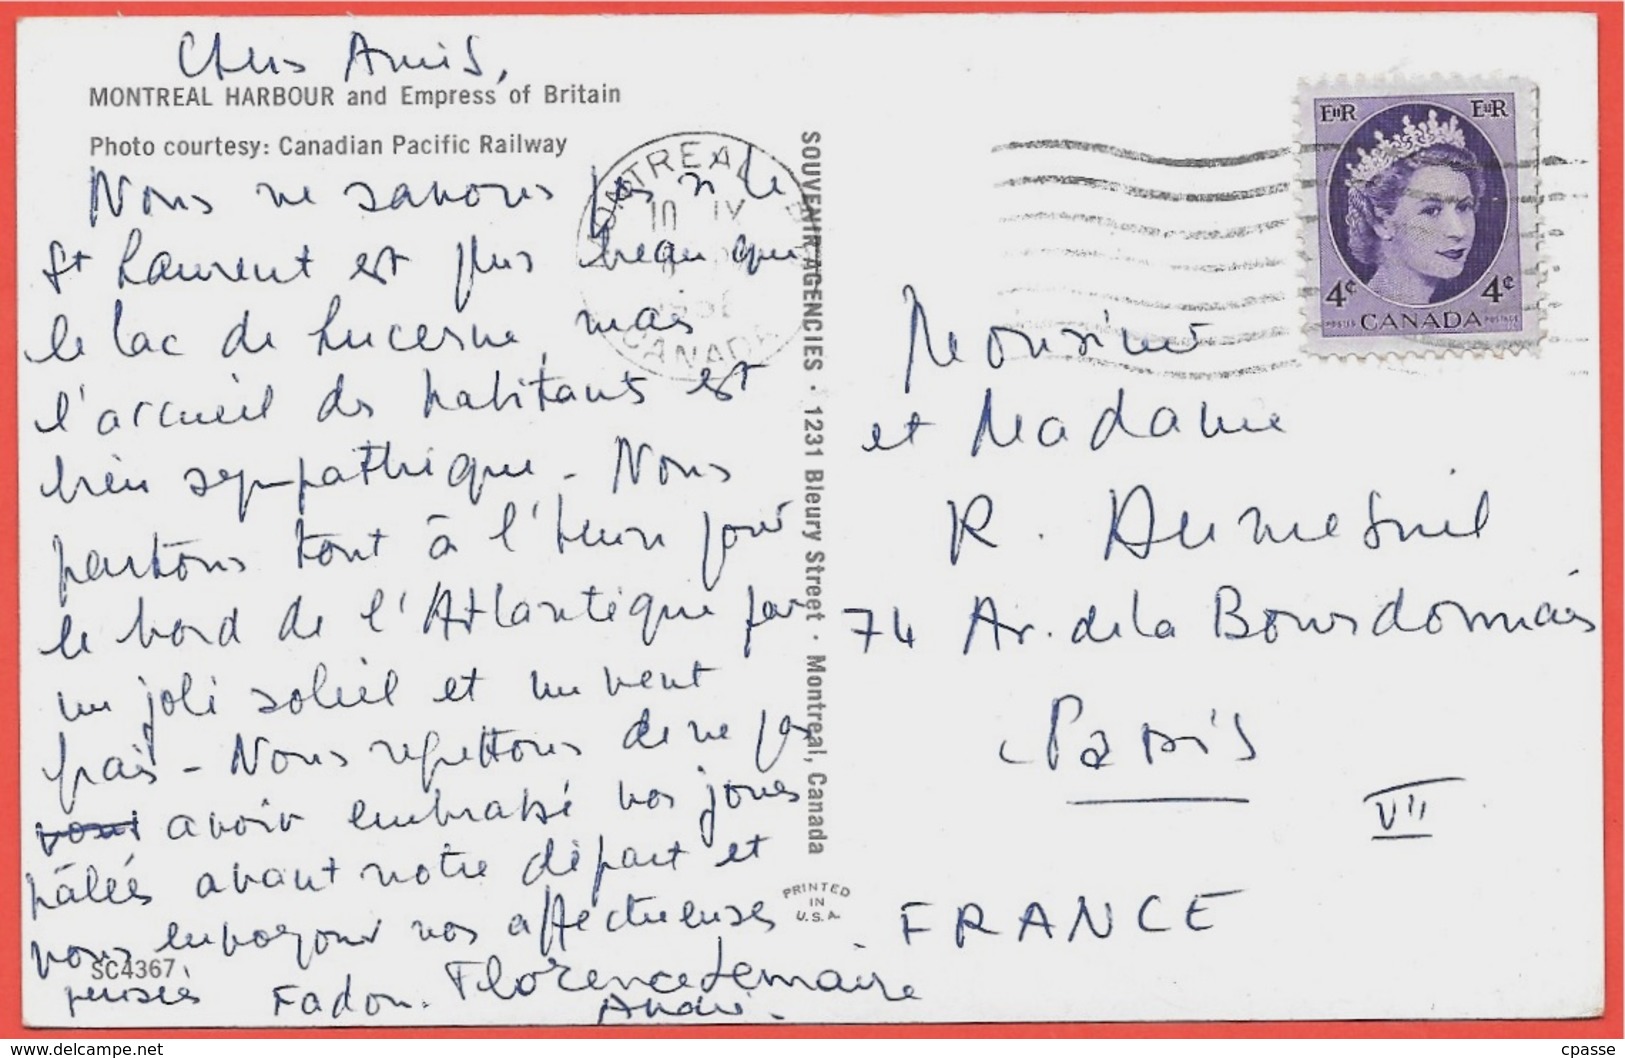 Chers Amis,
MONTREAL HARBOUR and Empress of Britain
Photo courtesy: Canadian Pacific Railway
Nous ne savons pas si le
St Laurent est plus beau que
le lac de Lucerne, mais
l'accueil des habitants est
bien sympathique - Nous
partons tout à l'heure pour
le bord de l'Atlantique par
un joli soleil et un vent
frais - Nous regrettons de ne pas
vous avoir embrassé vos joues
hâlées avant notre départ et
vous envoyons nos affectueuses
SC4367
pensées
Fadon. Florence Lemaire
André.
MONTREAL
10 IX
CANADA
SOUVENIR AGENCIES · 1231 Bleury Street · Montreal, Canada
PRINTED
IN
U.S.A.
EIIR EIIR
4¢ 4¢
POSTES CANADA POSTAGE
Monsieur
et Madame
R. Dumesnil
74 Av. de la Bourdonnais
Paris
VII
FRANCE
https://www.delcampe.net
cpasse